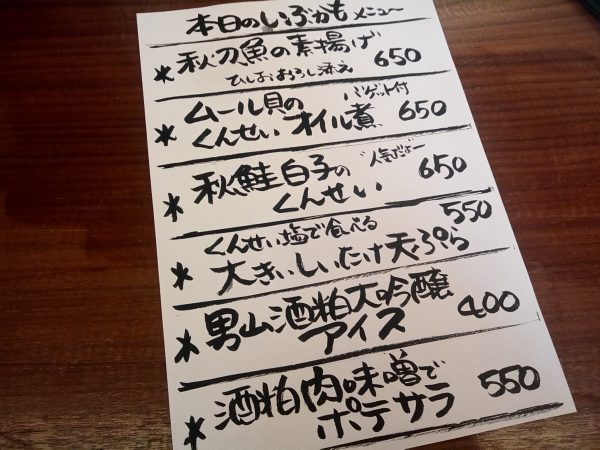 本日のいぶかも メニュー
*秋刀魚の素揚げ 650
ひしおおろし添え
*ムール貝の バゲット付
くんせいオイル煮 650
*秋鮭白子の 人気だよー
くんせい 650
くんせい塩で食べる 550
*大きいしいたけ天ぷら
*男山酒粕大吟醸
アイス 400
*酒粕肉味噌で
ポテサラ 550